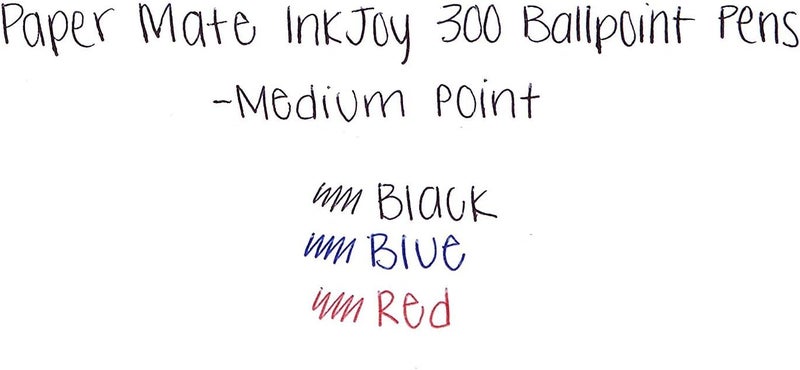 Paper Mate InkJoy 300 Ballpoint Pens
-Medium Point
Black
Blue
Red